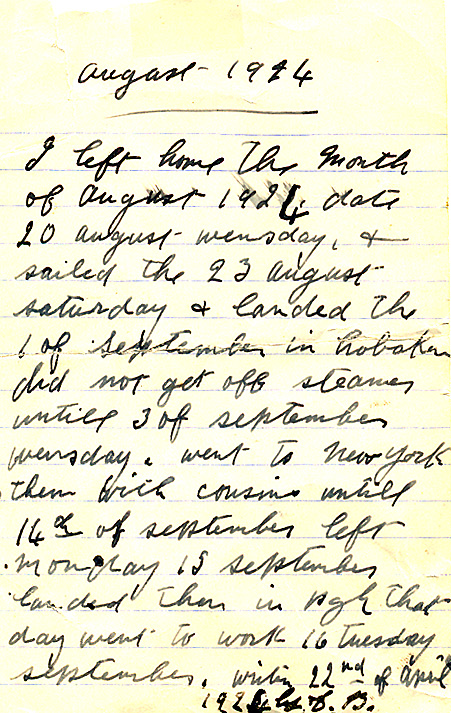 August 1924
I left home the Month
of August 1924 date
20 August wensday, &
sailed the 23 August
saturday & landed the
1 of September in hoboken
did not get off steamer
untill 3 of september
wensday. went to New York
them with cousins untill
14th of september left
monday 15 september
landed then in pgh that
day went to work 16 tuesday
september. writin 22nd of April
192